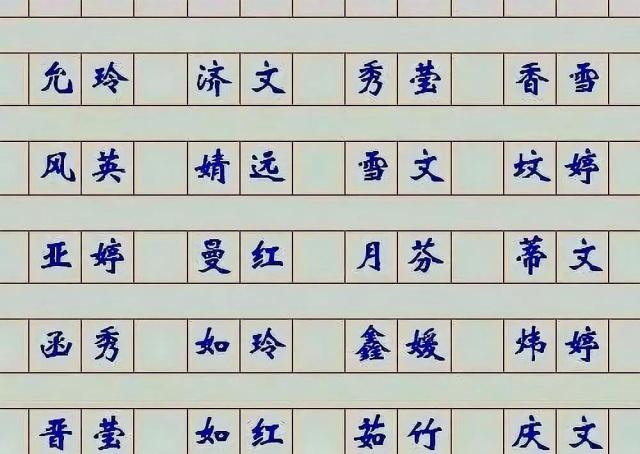 允玲 济文 秀莹 香雪
风英 婧远 雪文 坟婷
亚婷 曼红 月芬 蒂文
函秀 如玲 鑫媛 炜婷
晋莹 如红 茹竹 庆文